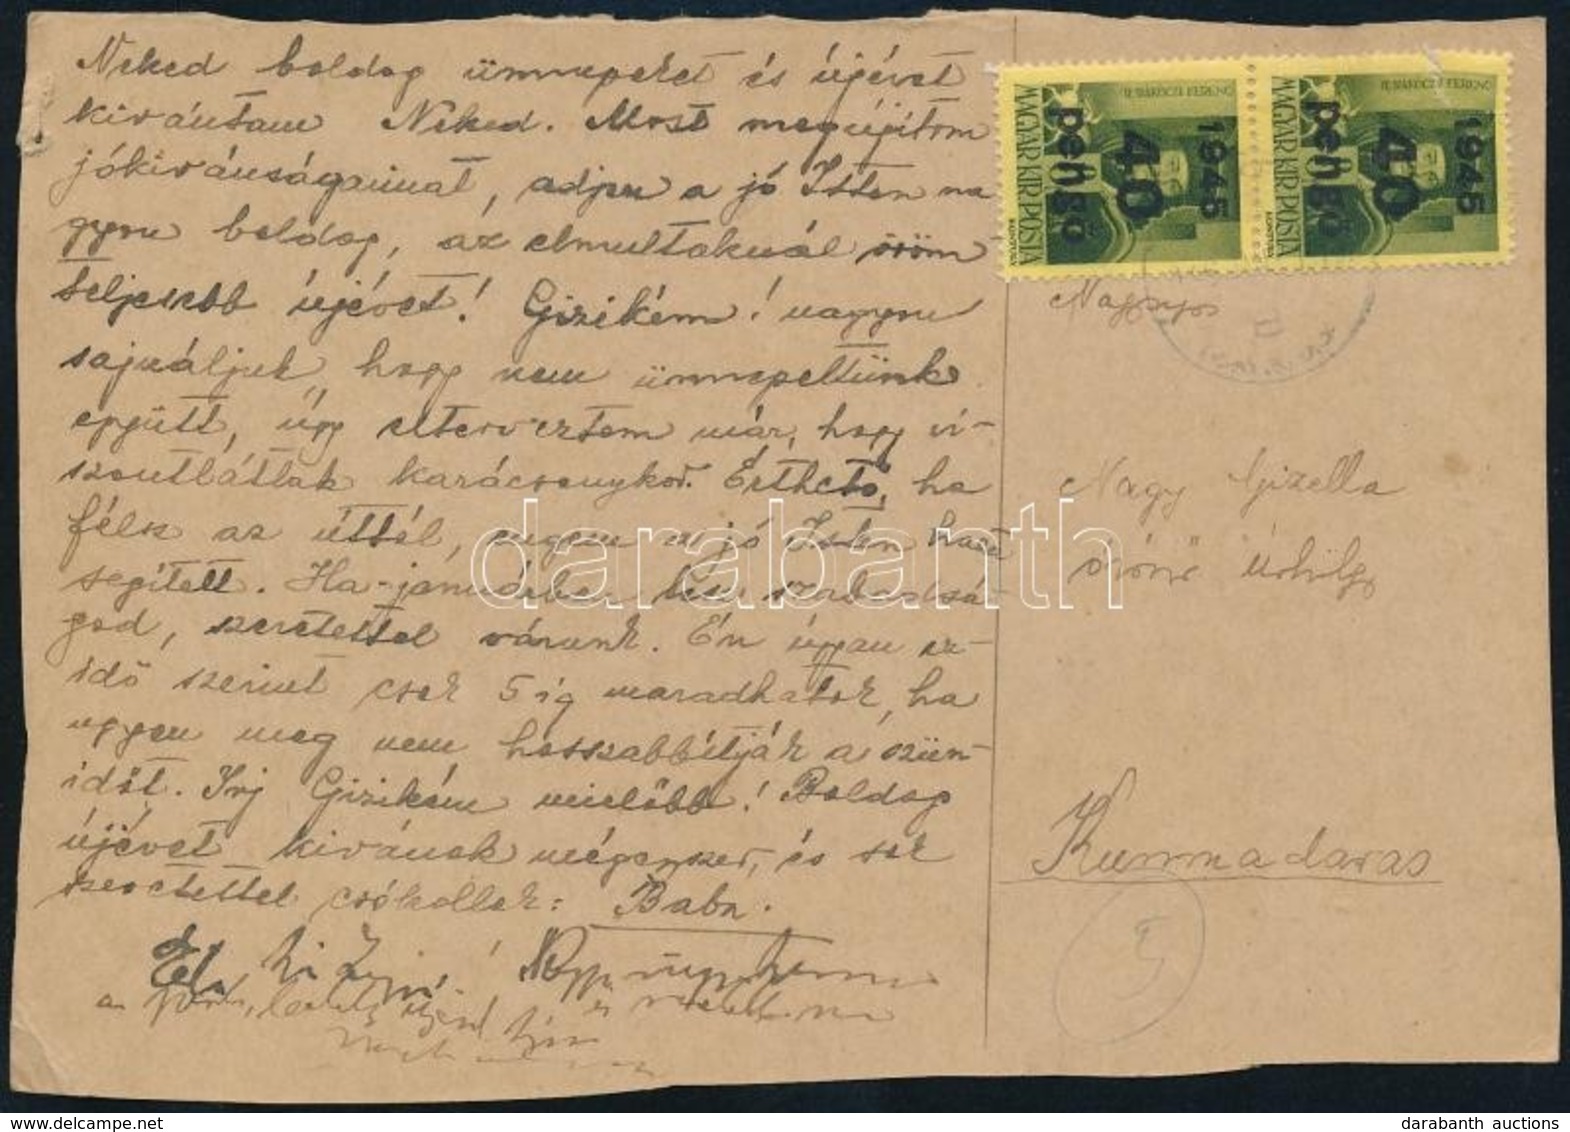 Neked boldog ünnepeket és újévet
kivántam Neked. Most megújítom
jókivánságaimat, adjon a jó Isten na
gyon boldog, az elmultaknál öröm
teljesebb újévet! Gizikém! nagyon
sajnáljuk, hogy nem ünnepeltünk
együtt, úgy elterveztem már, hogy vi-
szontlátlak karácsonykor. Érthető, ha
félsz az úttól, engem a jó Isten haza
segített. Ha januárban lesz szabadsá-
god, szeretettel várunk. Én úgyan sz-
idő szerint csak 5 ig maradhatok, ha
ugyan meg nem hosszabbítják a szün-
időt. Irj Gizikém mielőbb! Boldog
újévet kivánok mégegyszer, és sok
szeretettel csókollak: Baba.
MAGYAR KIR. POSTA
II. RÁKÓCZI FERENC
1945
40
pengő
MAGYAR KIR. POSTA
II. RÁKÓCZI FERENC
1945
40
pengő
Nagy Gizella
Kunmadaras
5
darabanth
darabanth auctions